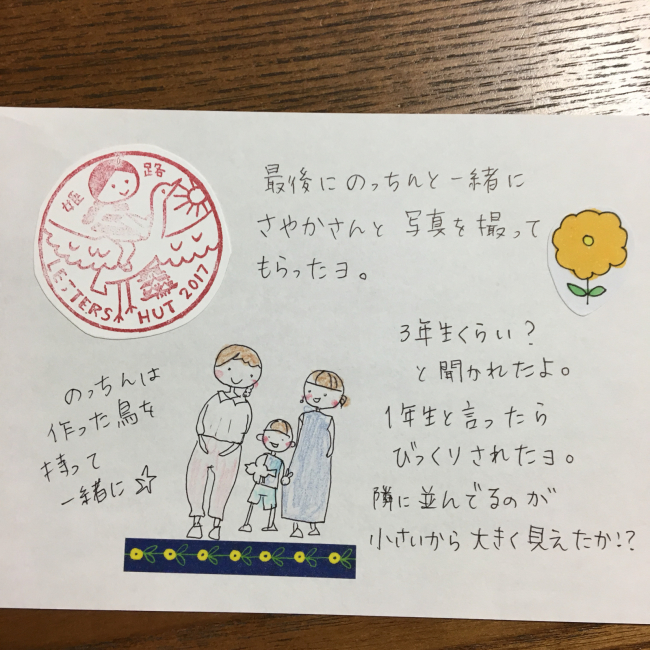 姫路
LETTERS HUT 2017
最後にのっちんと一緒に
さやかさんと写真を撮って
もらったヨ。
3年生くらい?
と聞かれたよ。
1年生と言ったら
びっくりされたヨ。
隣に並んでるのが
小さいから大きく見えたか!?
のっちんは
作った鳥を
持って
一緒に☆